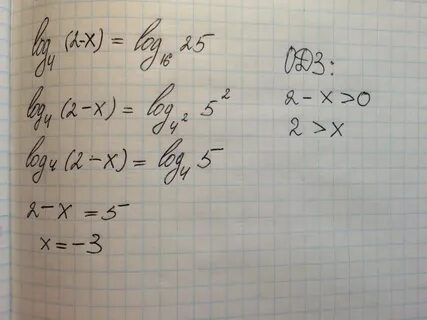 log₄ (2-x) = log₁₆ 25
log₄ (2-x) = log₄² 5²
log₄ (2-x) = log₄ 5
2-x = 5
x = -3
ОДЗ:
2-x>0
2>x